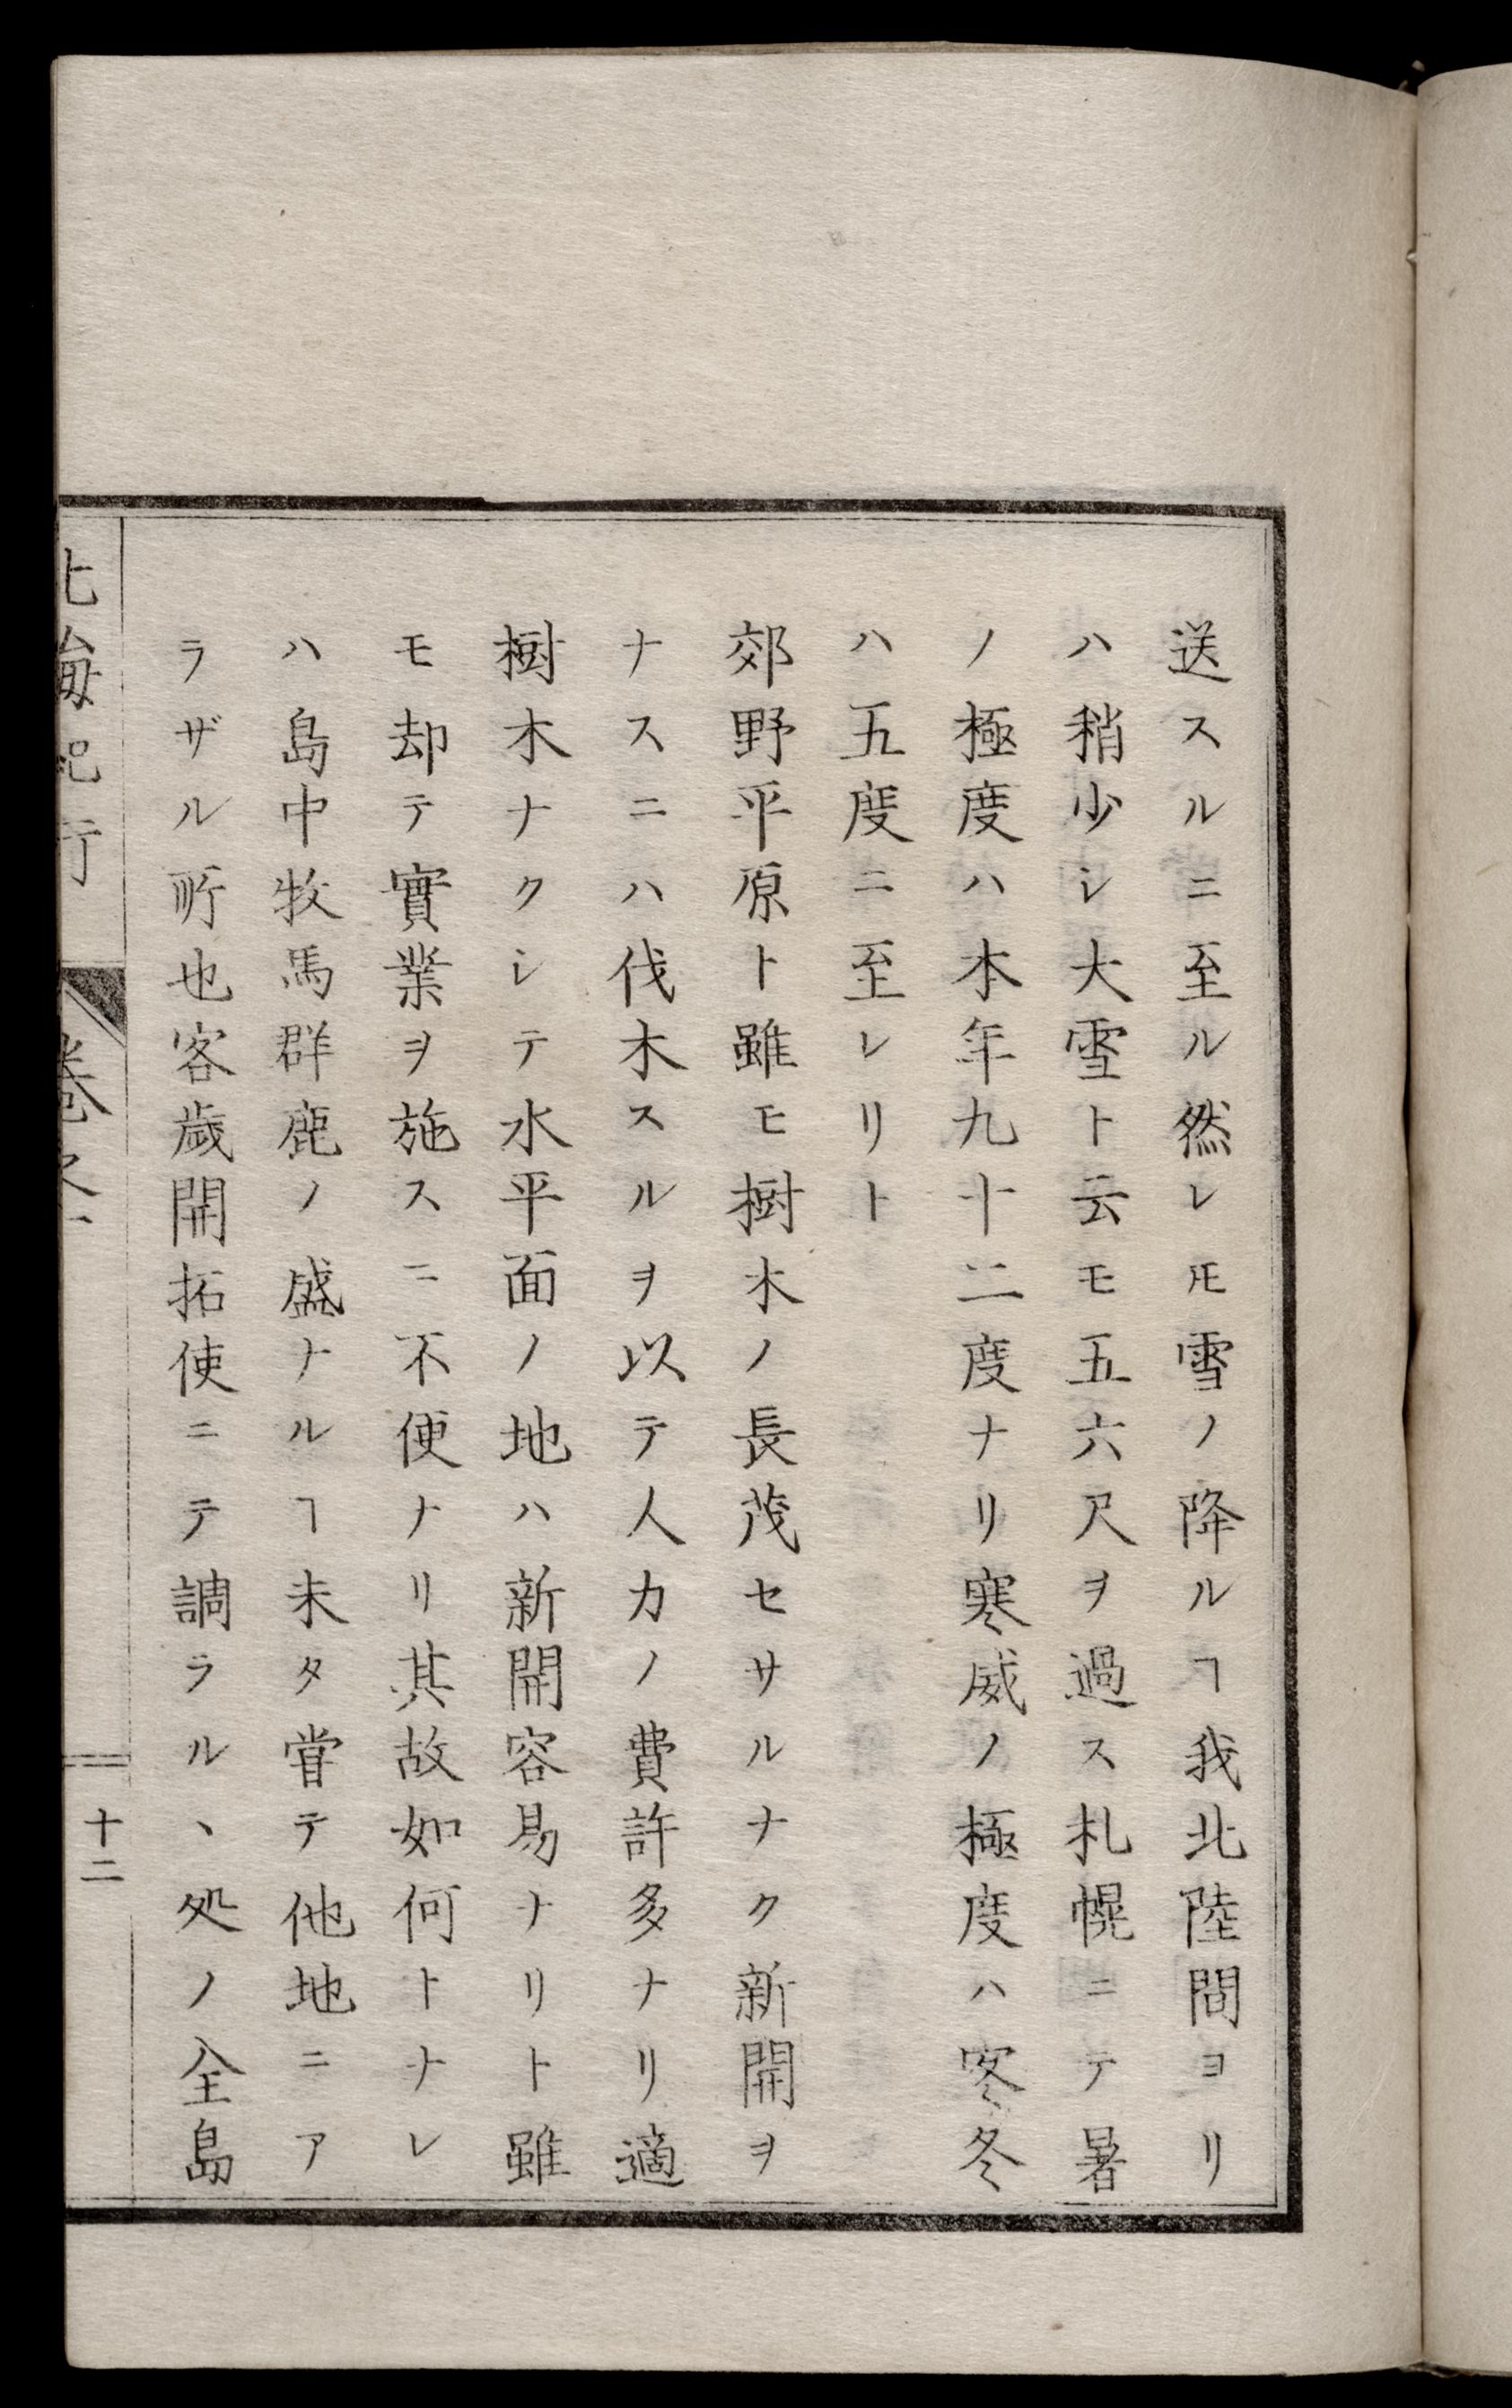 送スルニ至ル然レ𪜈雪ノ降ルヿ我北陸間ヨリ
ハ稍少シ大雪ト云モ五六尺ヲ過ス札幌ニテ暑
ノ極度ハ本年九十二度ナリ寒威ノ極度ハ客冬
ハ五度ニ至レリト
郊野平原ト雖モ樹木ノ長茂セサルナク新開ヲ
ナスニハ伐木スルヲ以テ人力ノ費許多ナリ適
樹木ナクシテ水平面ノ地ハ新開容易ナリト雖
モ却テ實業ヲ施スニ不便ナリ其故如何トナレ
ハ島中牧馬群鹿ノ盛ナルヿ未タ甞テ他地ニア
ラザル所也客歳開拓使ニテ調ラルヽ処ノ全島
北海紀行 卷之一 十二